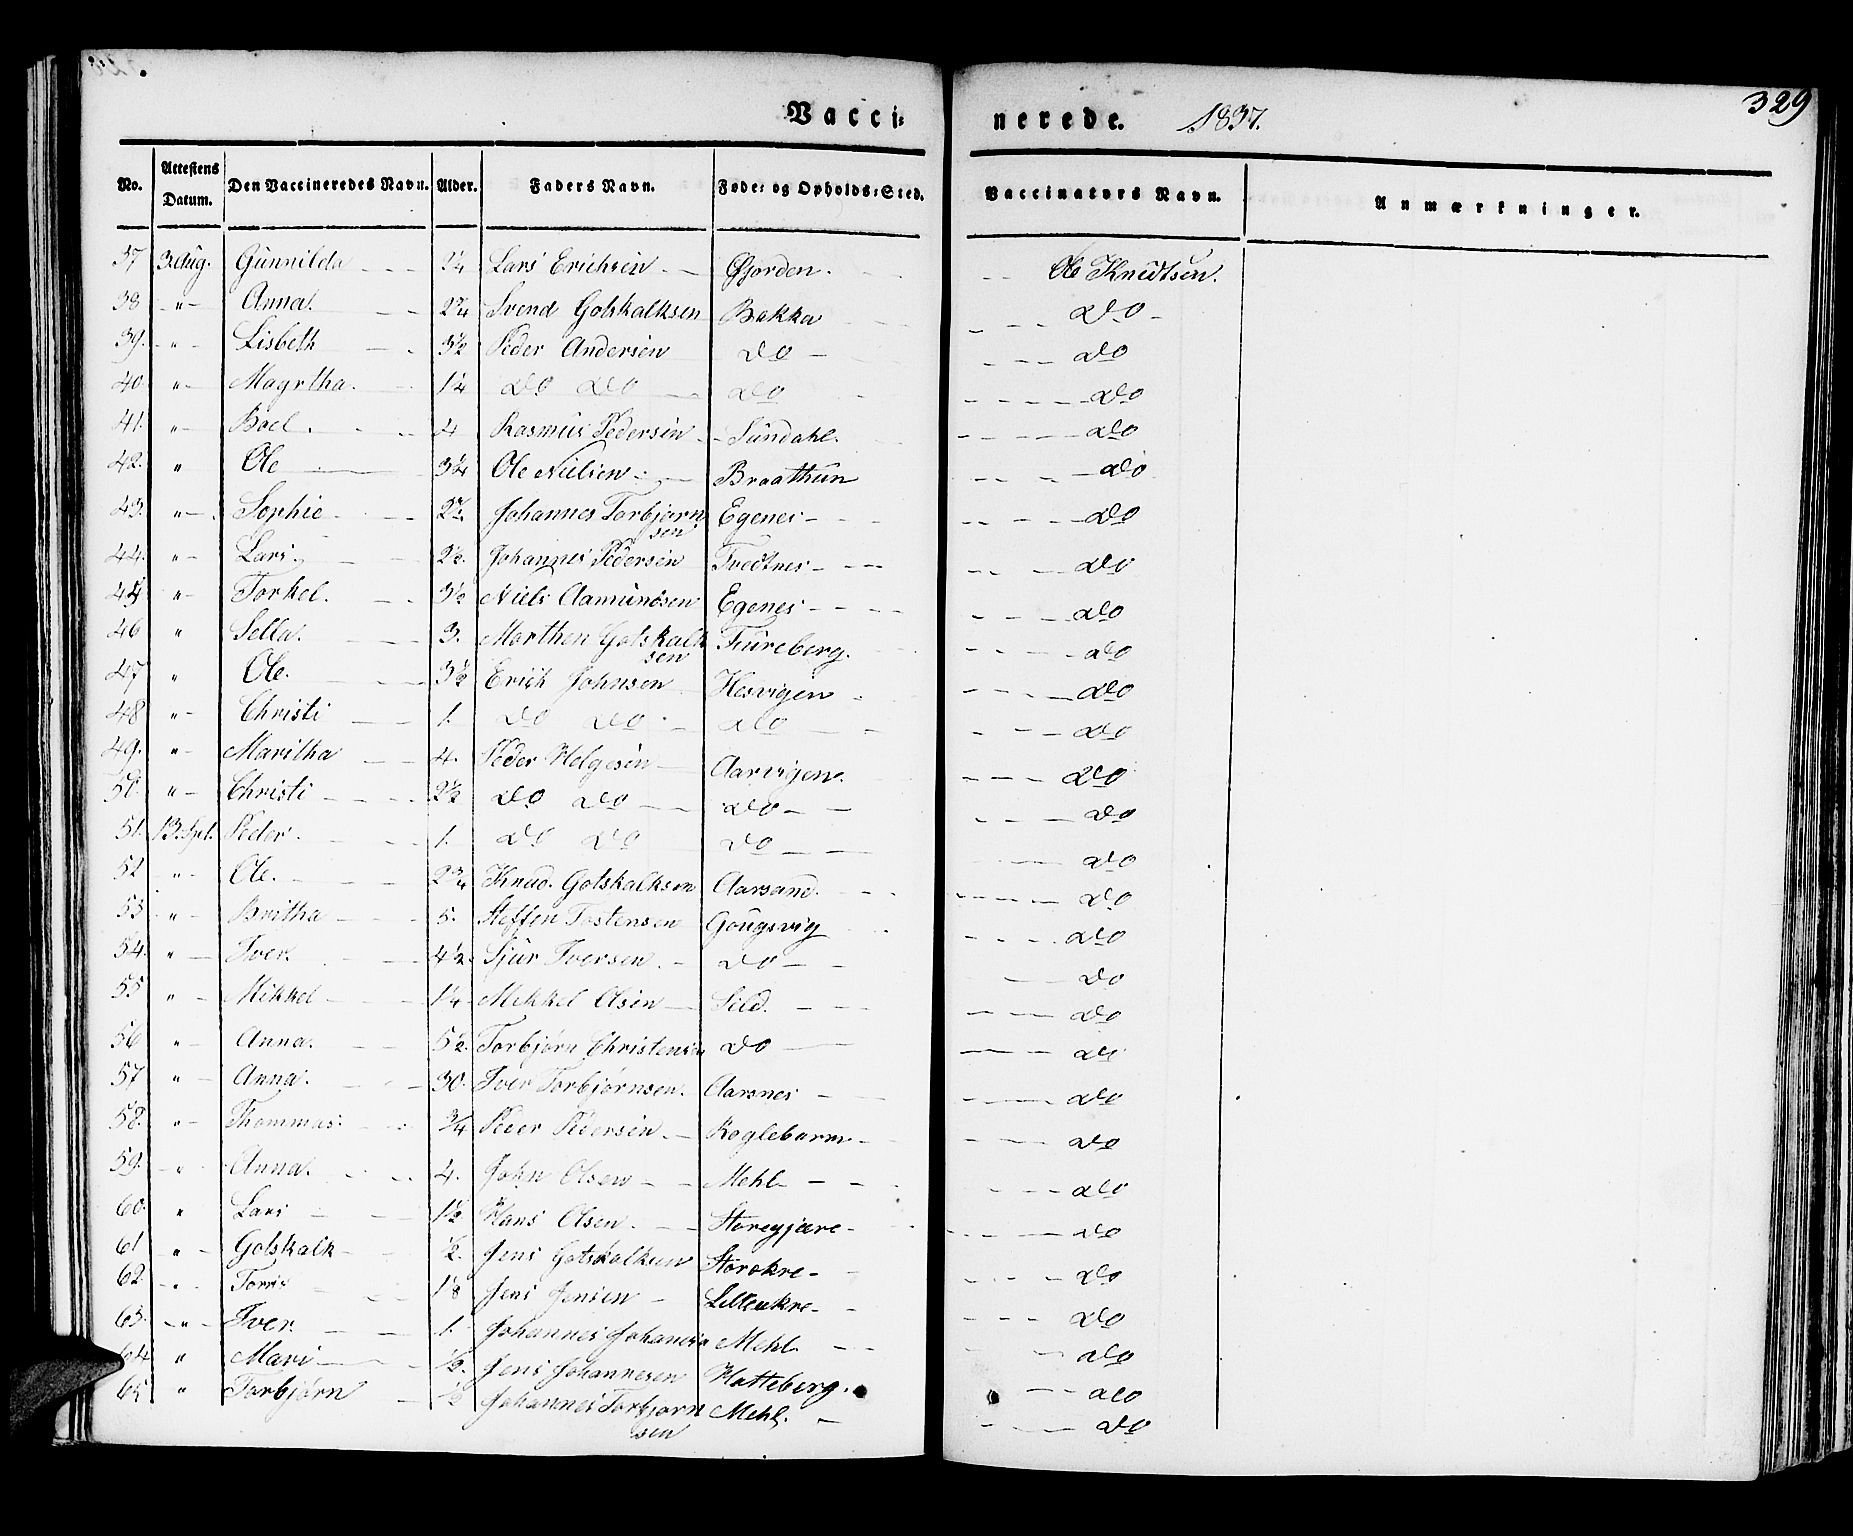 Vaccinerede. 1837. 329
No. | Attestens Datum. | Den Vaccineredes Navn. | Alder. | Faders Navn. | Føde- og Opholds-Sted. | Vaccinators Navn. | Anmærkninger.
37 3 Aug. Gunnilda 2¼ Lars Erichsen Øjorden. Ole Knudtsen.
38 " Anna. 2¾ Svend Gotskalksen Bakka Do
39. " Lisbeth 3½ Peder Andersen Do Do
40 " Magrtha. 1¼ Do Do Do Do
41. " Boel. 4 Rasmus Pedersen Sundahl. Do
42. " Ole 3¼ Ole Nielsen Braathun Do
43. " Sophie Johannes Torbjørnsen Egenes Do
44. " Lars. 2½. Johannes Pedersen Tvedtnes Do
45 " Torkel. 3½ Niels Aamundsen Egenes Do
46 " Sella. 3. Marthen Gotskalksen Fureberg. Do
47 " Ole. 3½ Erich Johnsen Hesvigen Do
48 " Christi 1. Do Do Do Do
49. " Maritha 4. Peder Helgesen Aarvigen. Do
50. " Christi 2½ Do Do Do Do
51. 13. Spt. Peder. 1. Do Do Do Do
52 " Ole. 2¾ Knud. Gotskalksen Aarsand. Do
53 " Britha 5. Steffen Tostensen Gougsvig Do
54. " Iver. 4½ Sjur Iversen. Do Do
55 " Mikkel 1¼ Mikkel Olsen Sild. Do
56 " Anna. 5½. Torbjørn Christensen Do Do
57 " Anna. 30. Iver Torbjørnsen. Aarsnes Do
58. " Thommas. ¾ Peder Pedersen. Do
59. " Anna. 4. John Olsen Mehl Do
60. " Lars 1½ Hans Olsen. Storegjære Do
61 " Gotskalk ½. Jens Gotskalksen Storakre Do
62. " Torris 1⅛ Jens Jensen Lilleakre Do
63. " Iver. 1. Johannes Johannesen Mehl. Do
64 " Mari ½. Jens Johannesen Hatteberg. Do
65 " Torbjørn ½ Johannes Torbjørnsen Mehl. Do
Do